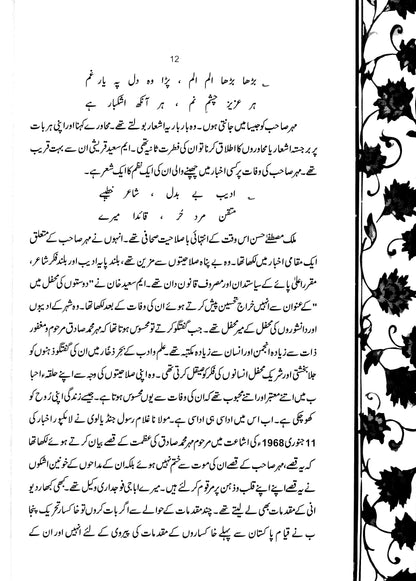 12
بڑھا بڑھا الم الم ، پڑا وہ دل پہ یار غم
ہر عزیز چشم نم ، ہر آنکھ اشکبار ہے
مہر صاحب کو جیسا میں جانتی ہوں۔ وہ بار بار یہ اشعار بولتے تھے۔ محاورے کہنا اور اپنی ہر بات
پر برجستہ اشعار یا محاوروں کا اطلاق کرنا تو ان کی فطرت ثانیہ تھی۔ ایم سعید قریشی ان سے بہت قریب
تھے۔ مہر صاحب کی وفات پر کسی اخبار میں چھپنے والی ان کی ایک نظم کا ایک شعر ہے۔
ادیب بے بدل ، شاعر خطیبے
متقن مرد حُر ، قائدا میرے
ملک مصطفےٰ حسن اس وقت کے انتہائی باصلاحیت صحافی تھے۔ انہوں نے مہر صاحب کے متعلق
ایک مقامی اخبار میں لکھا تھا۔ وہ بے پناہ صلاحیتوں سے مزین تھے، بلند پایہ ادیب اور بلند فکر شاعر،
مقرر اعلیٰ پائے کے سیاستدان اور مصروف قانون دان تھے۔ ایم سعید خان نے "دوستوں کی محفل میں
"کے عنوان سے انہیں خراج تحسین پیش کرتے ہوئے ان کی وفات کے بعد لکھا تھا۔ وہ شہر کے ادیبوں
اور دانشوروں کی محفل کے میر محفل تھے۔ جب گفتگو کرتے تو محسوس ہوتا تھا کہ مہر محمد صادق مرحوم و مغفور
ذات سے زیادہ انجمن اور انسان سے زیادہ مکتبہ تھے۔ علم و ادب کے بحر ذخار میں ان کی گفتگو ذہنوں کو
جلا بخشتی اور شریک محفل انسانوں کی فکر کو صیقل کرتی تھی۔ وہ اپنی صلاحیتوں کی وجہ سے اپنے حلقہ احبا
ب میں اتنے معتبر اور اتنے محبوب تھے کہ ان کی وفات سے یوں محسوس ہوتا ہے۔ جیسے زندگی اپنی روح کو
کھو چکی ہے۔ اب اس میں اداسی ہی اداسی ہے۔ مولانا غلام رسول جنڈیالوی نے لائلپور اخبار کی
11 جنوری 1968ء کی اشاعت میں مرحوم مہر محمد صادق کی عظمت کے قصے بیان کرتے ہوئے لکھا تھا
کہ یہ قصے، مہر صاحب کے قصے ان کی موت سے ختم نہیں ہوئے بلکہ ان کے مداحوں کے خونین اشکوں
نے یہ قصے اپنے اپنے قلب و ذہن پر مرقوم کر لئے ہیں۔ میرے ابا جی فوجداری وکیل تھے۔ کبھی کبھار دیو
انی کے مقدمات بھی لے لیتے تھے۔ چند مقدمات کے حوالے سے اگر بات کروں تو خاکسار تحریک پنجا
ب نے قیام پاکستان سے پہلے خاکساروں کے مقدمات کی پیروی کے لئے انہیں اور ان کے